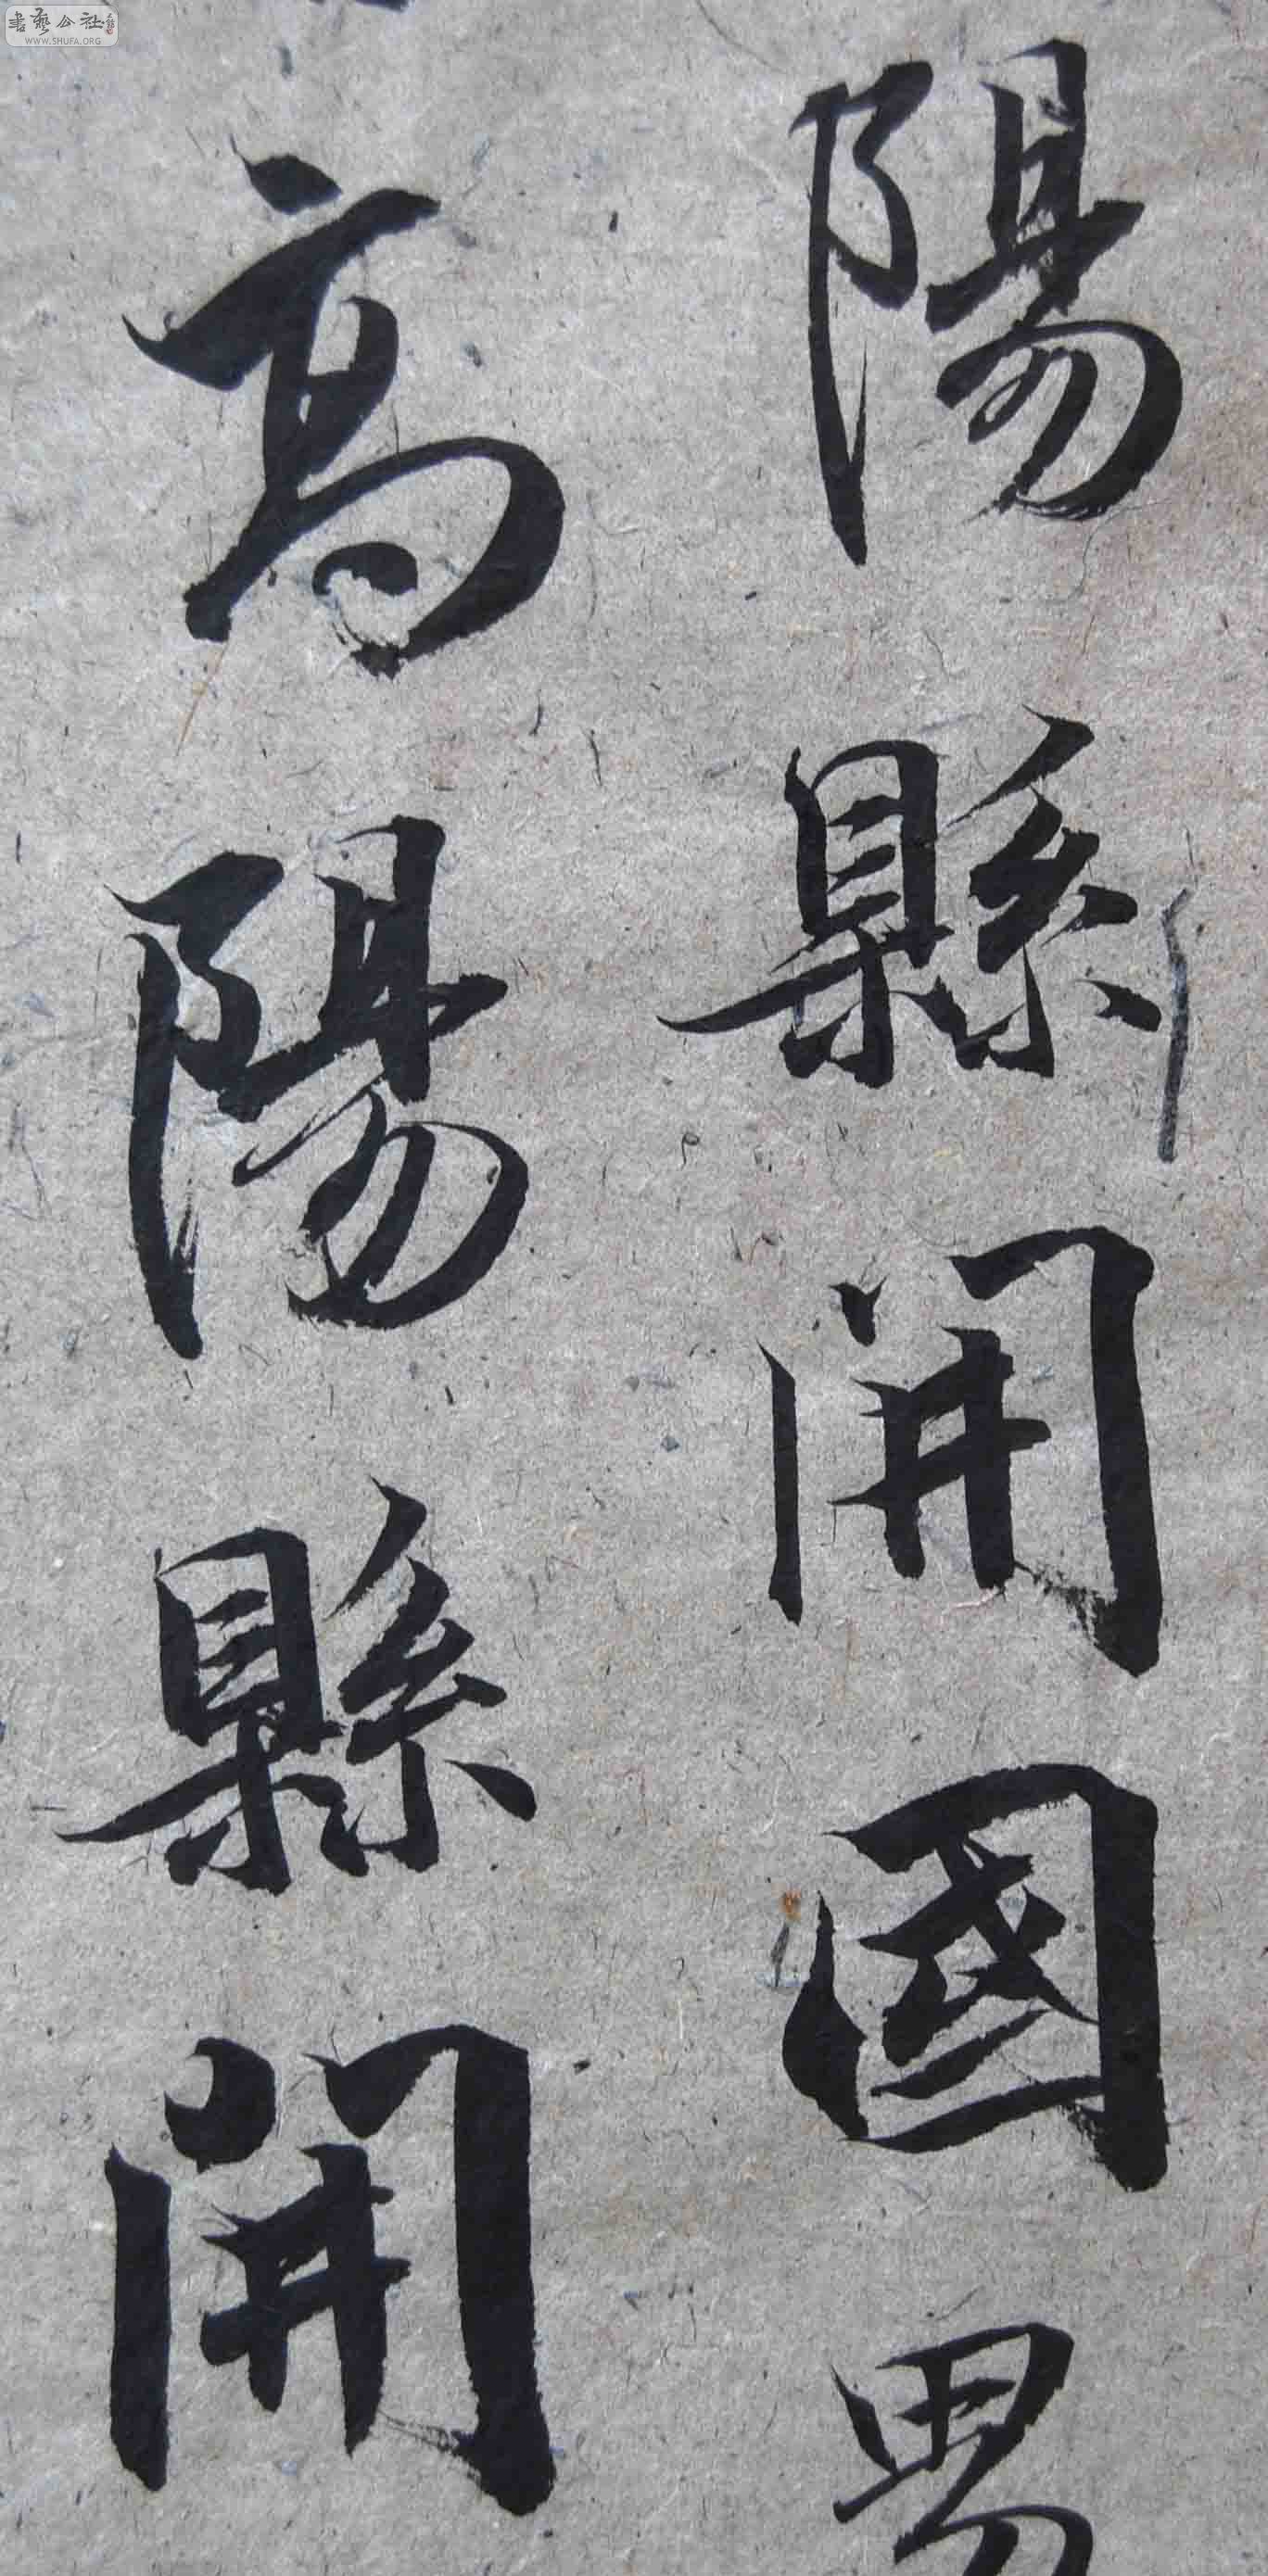 陽縣開國男
高陽縣開
書藝公社
WWW.SHUFA.ORG